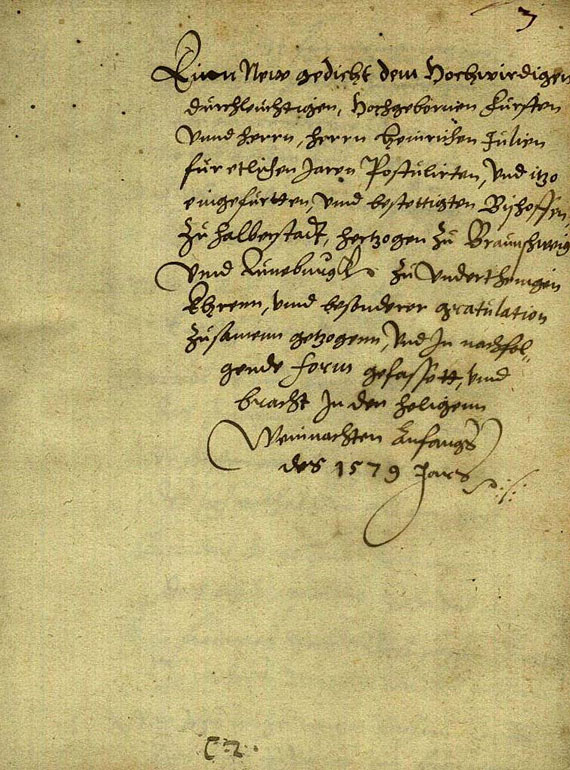 3
Einn New gedicht dem Hochwirdigen
durchleuchtigen, Hochgebornen Fürsten
vnnd herrn, herrn Heinrichen Julien
für etlichen Jaren Postulirten, vnd itzo
eingefürtten, vnnd bestettigten Bischoffen
Zu Halberstadt, hertzogen Zu Braunschweig
vnnd Luneburgk Zu vnderthenigen
Ehrenn, vnnd besonderer gratulation
Zusamenn getzogenn, vnd In nachfol-
gende form gefassett, vnnd
bracht In den heligenn
Weinnachten Anfangs
des 1579 Jars